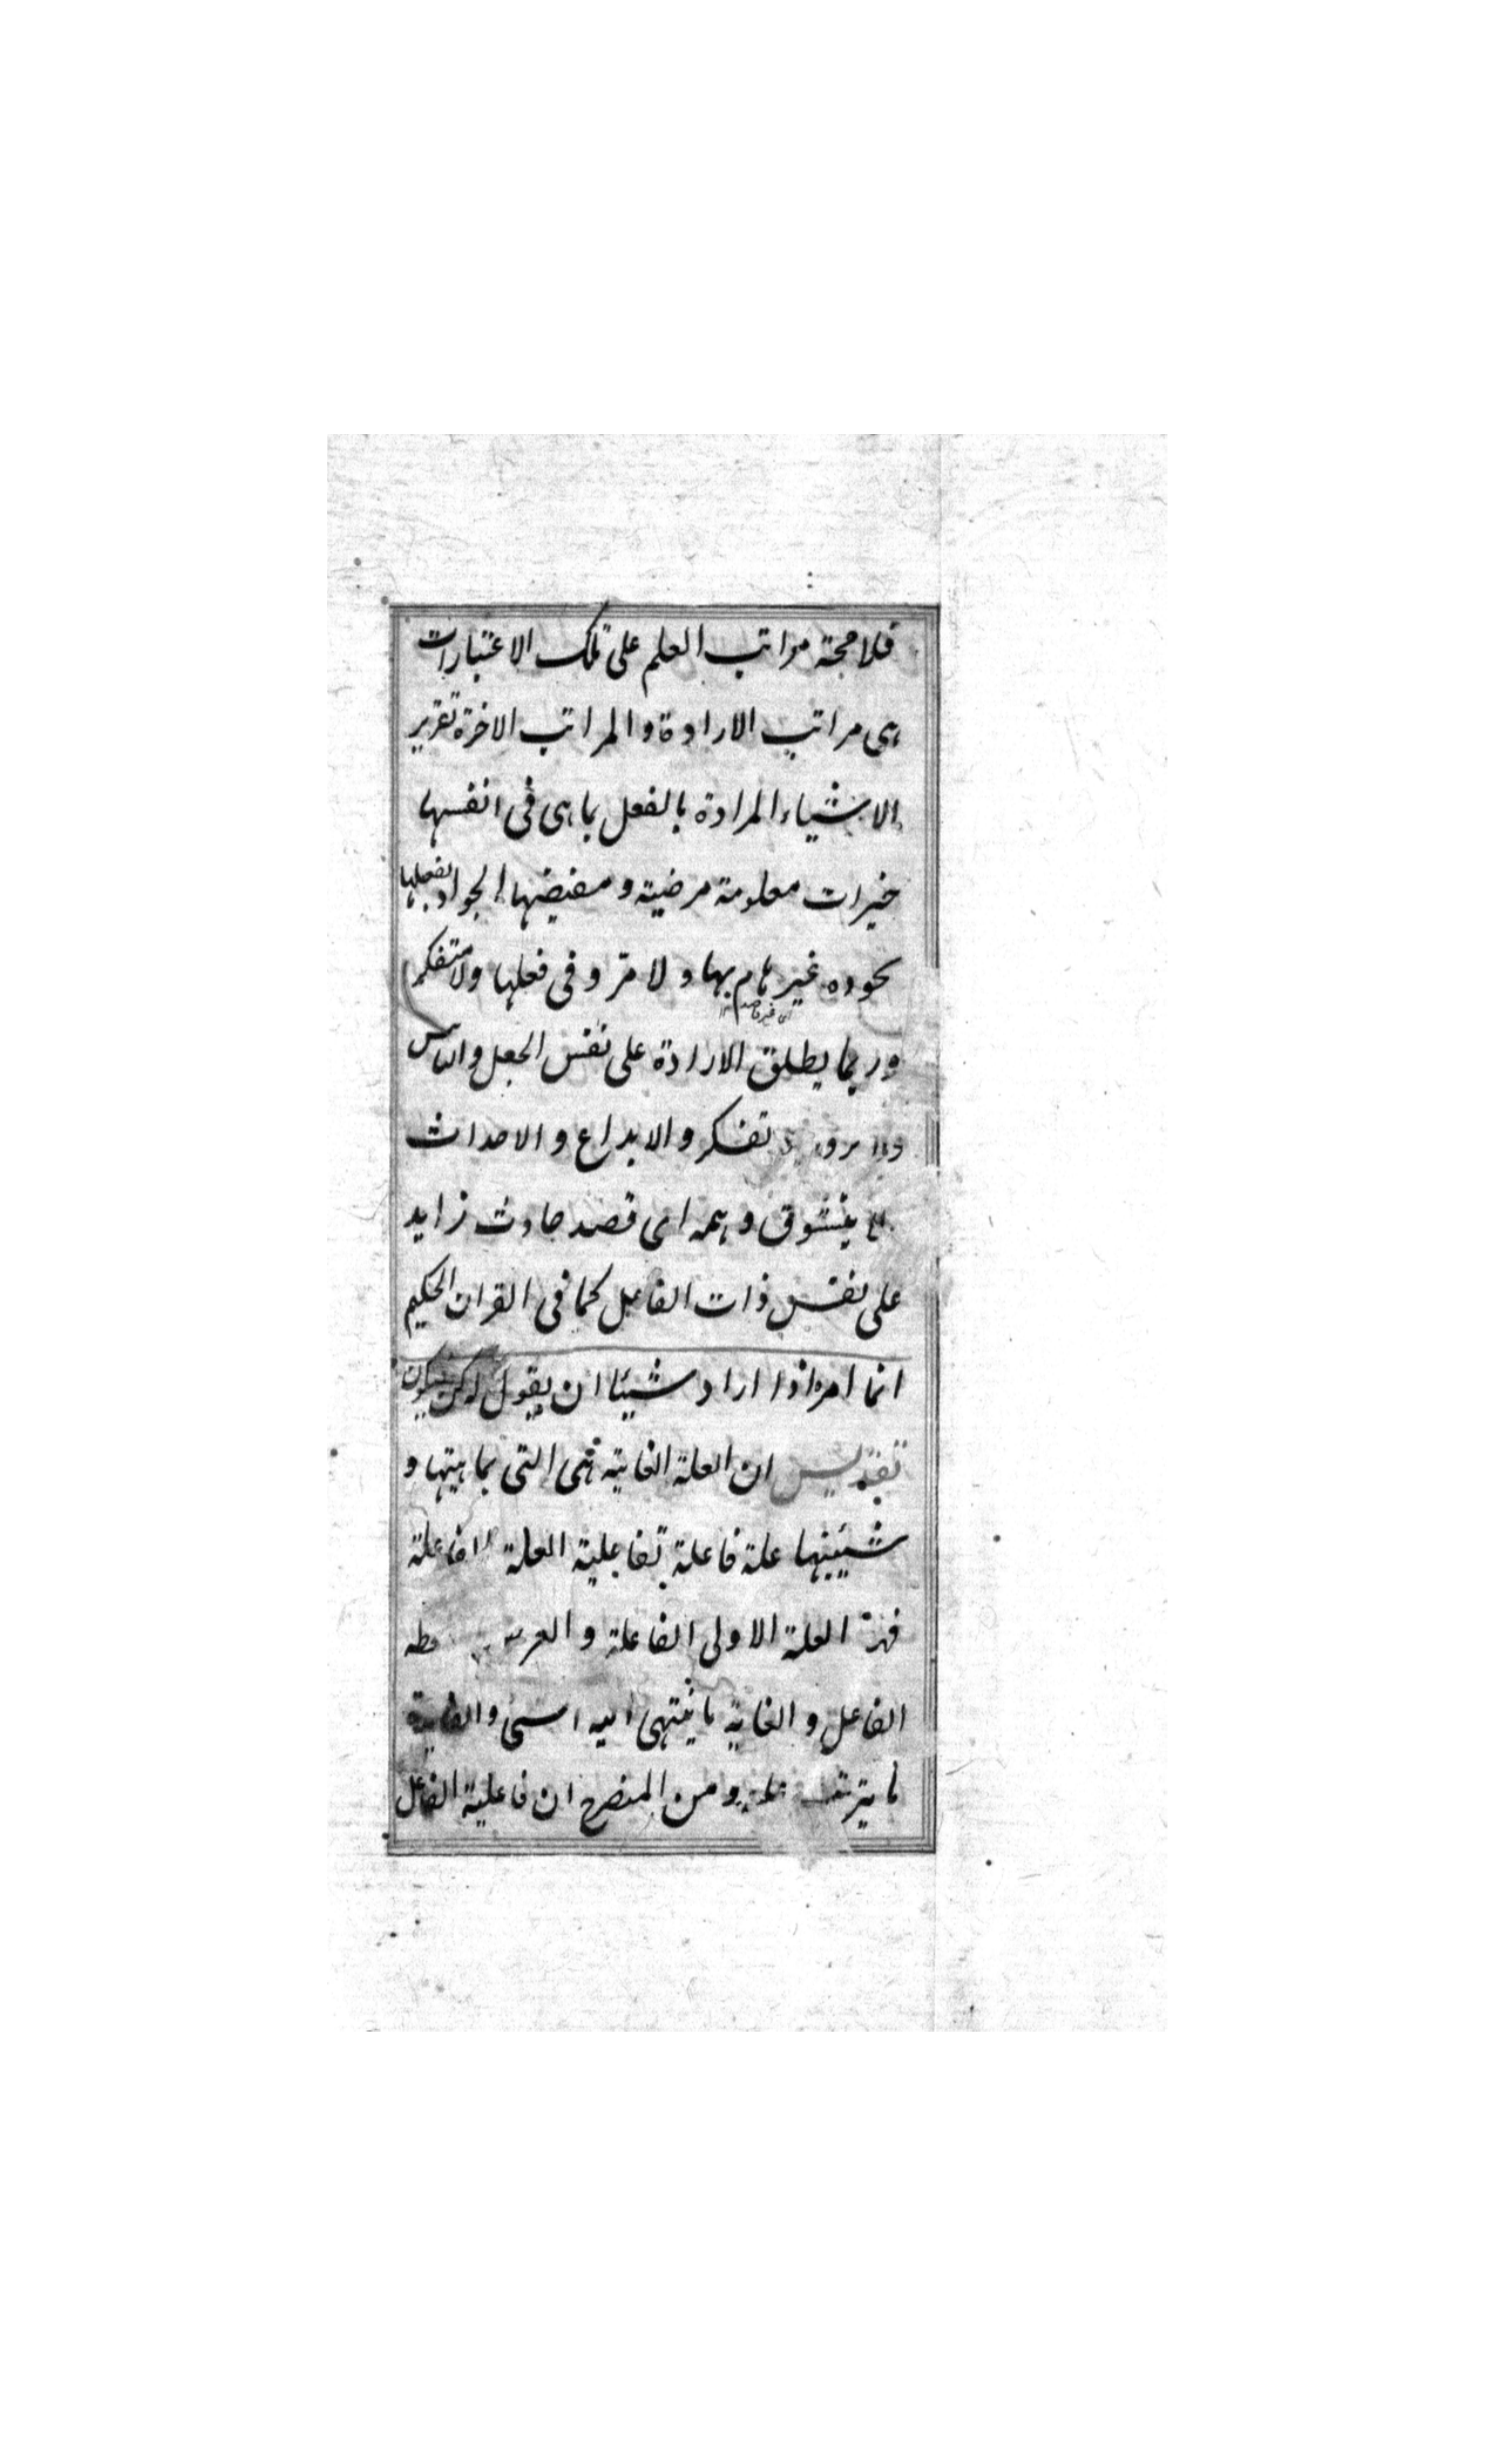 فلا محجة مراتب العلم على تلك الاعتبارات
هى مراتب الارادة والمراتب الاخرة تقرير
الاشياء المرادة بالفعل بما هى فى انفسها
خيرات معلومة مرضية ومفيضها الجواد بفعلها
بجوده غير هام بها ولا متروفى فعلها ولا متفكر
اى غير قاصد
وربما يطلق الارادة على نفس الجعل و
تفكر والابداع والاحداث
يتشوق وهمه اى قصد حادث زايد
على نفس ذات الفاعل كما فى القران الحكيم
انما امره اذا اراد شيئا ان يقول له كن فيكون
تقديس ان العلة الغائية هى التى بماهيتها و
شيئيتها علة فاعلة لفاعلية العلة الفاعلة
فهذه العلة الاولى الفاعلة و
الفاعل والغاية ما ينتهى اليه الشى والغاية
ما يترتب عليه ومن المنصرح ان فاعلية الفاعل